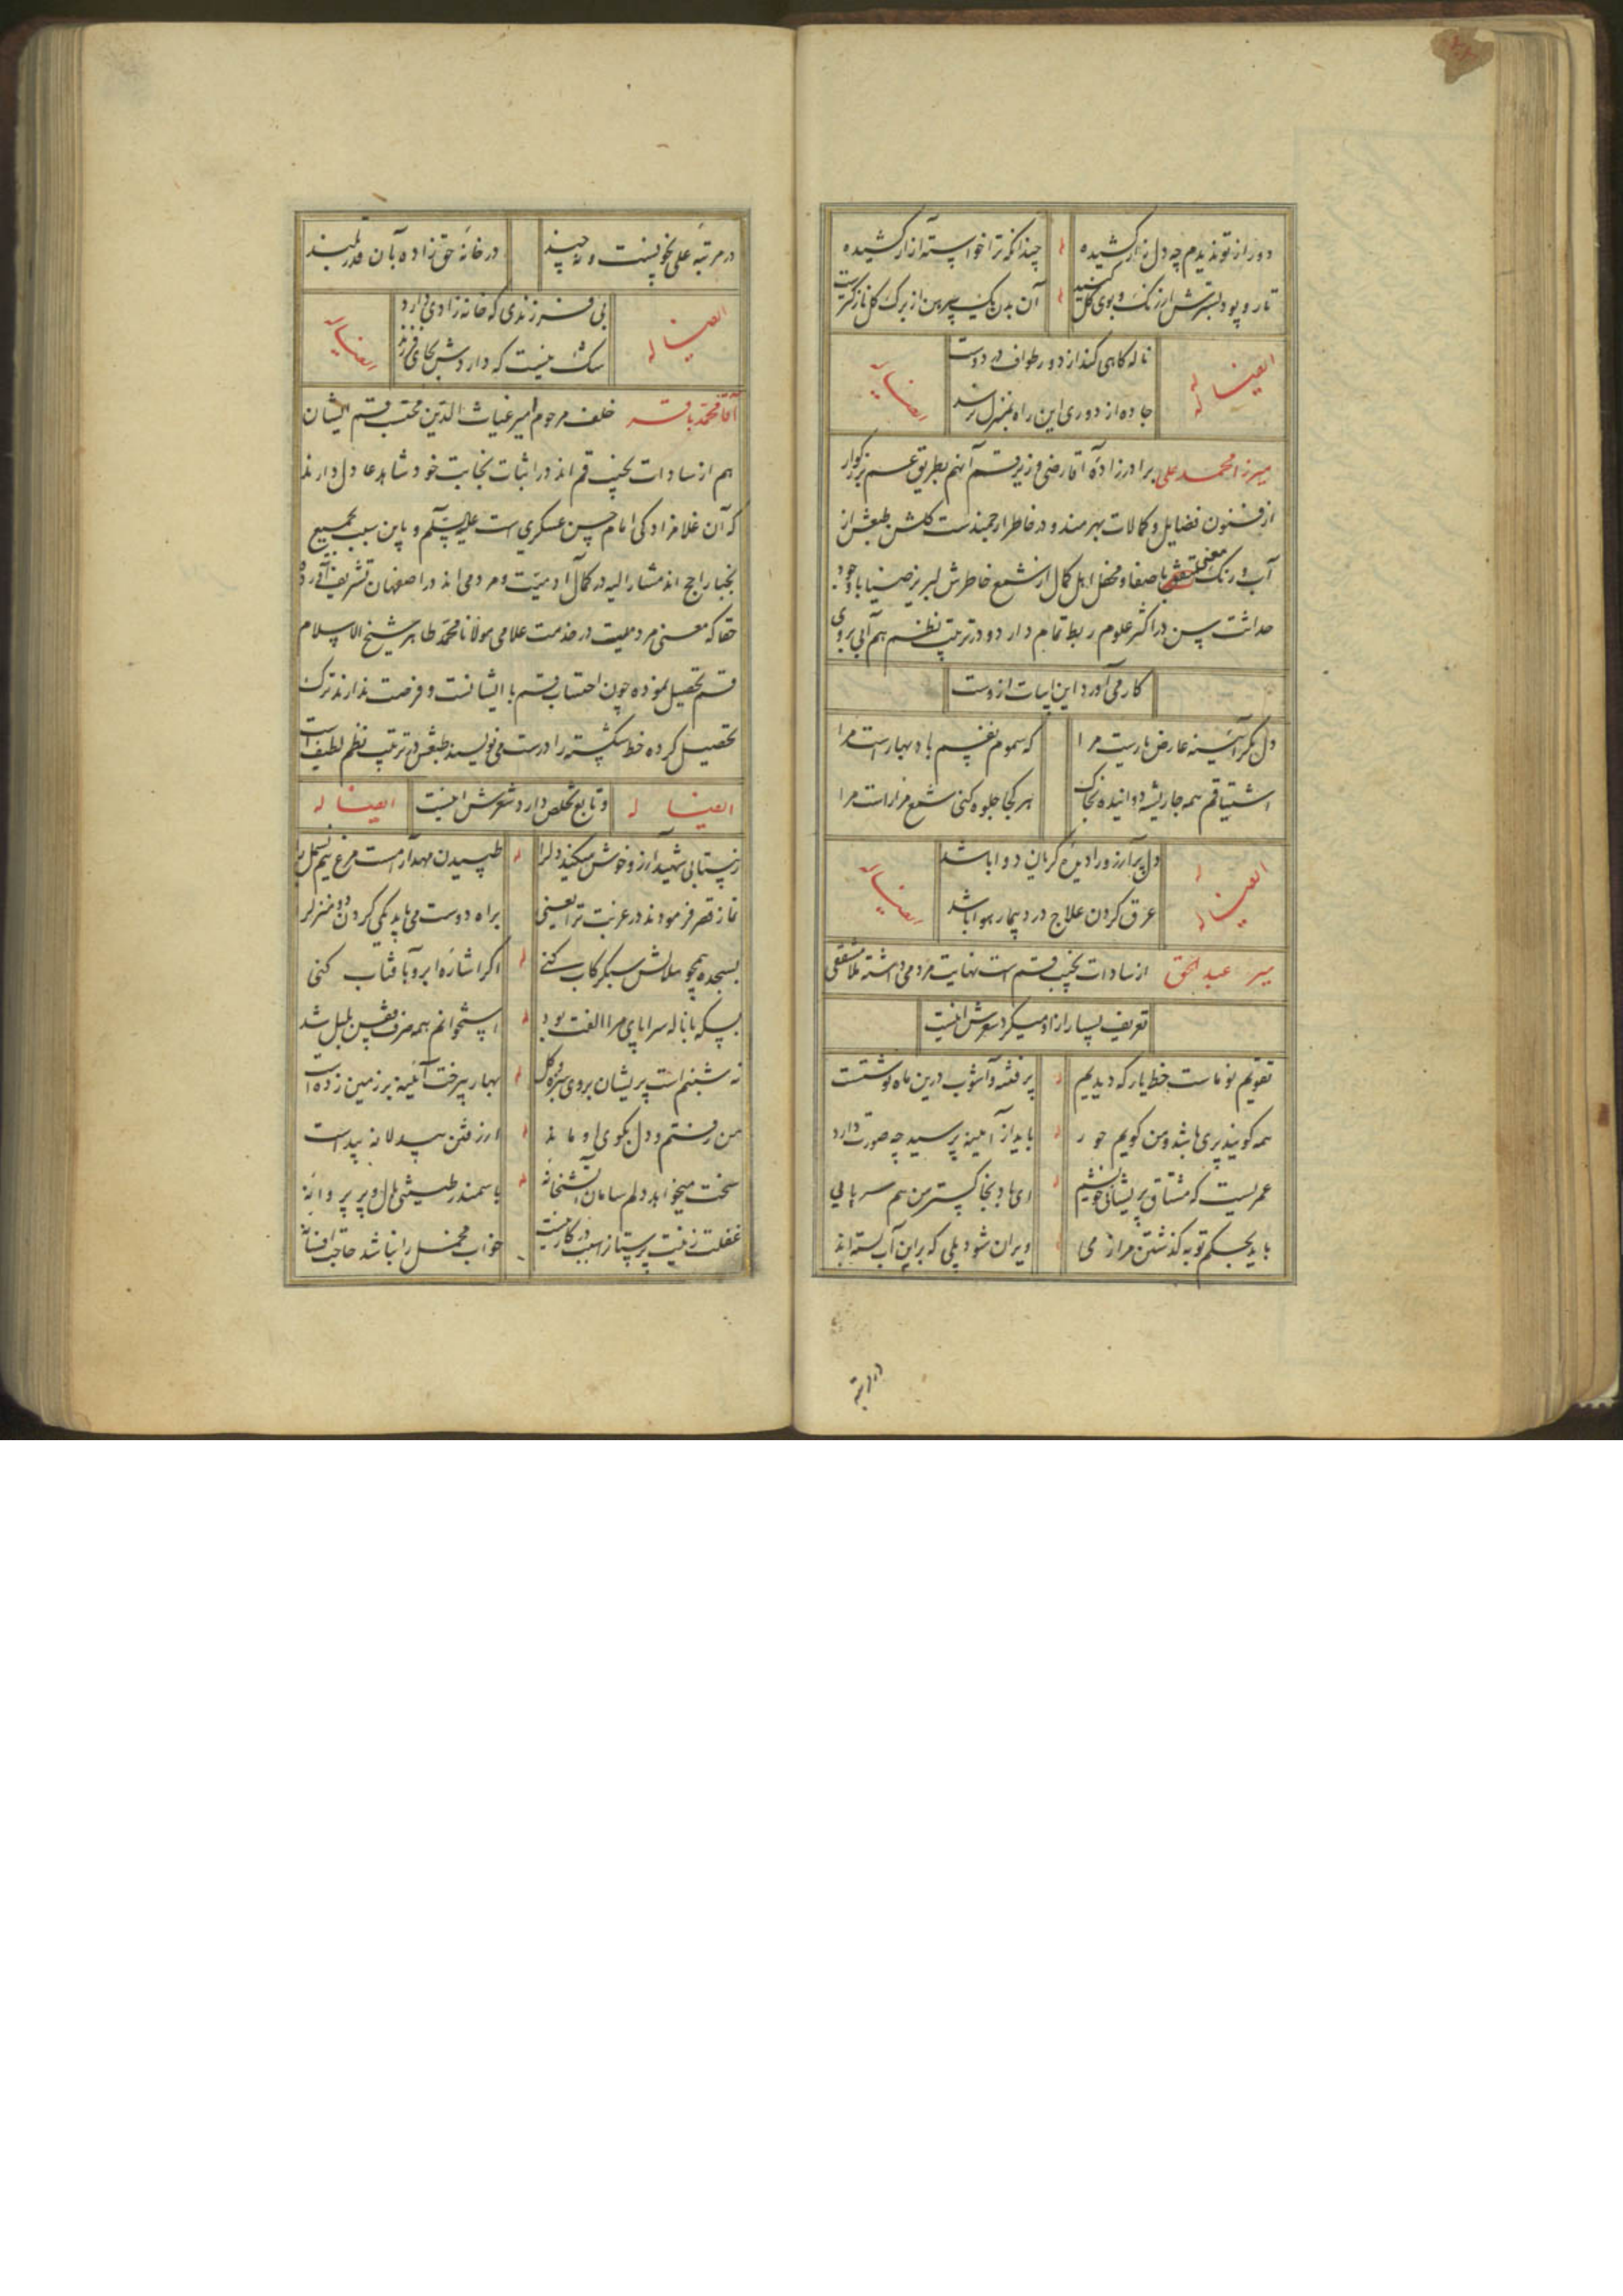 دور از تو ندیدم چه دل زار کشیده
چندانکه ترا خواسته آزار کشیده
تار و پود بسترش از رنگ و بوی گل کنید
آن بدن یک پیرهن از برک کل نازکترست
ایضا له
ناله کاهی کند از دور طواف در دوست
جاده از دوری این راه بمنزل نرسد
ایضا له
میرزا محمد علی برادرزادهٔ آقا رضی وزیر قم آنهم بطریق عم بزرکوار
از فنون فضایل و کمالات بهرمند و در خاطر ارجمندست کلشن طبعش از
آب و رنک معنی باصفا و محفل اهل کمال از شمع خاطرش لبریز ضیا با وجود
حداثت سن در اکثر علوم ربط تمام دارد و در ترتیب نظم هم آبی بروی
کار می آورد این ابیات ازوست
دل مکر آینه عارض یارست مرا
که سموم نفسم باد بهارست مرا
اشتیاقم همه جا ریشه دوانیده بخاک
هر کجا جلوه کنی شمع مزارست مرا
ایضا له
دل پر آرزو را دیدهٔ کریان دوا باشد
عرق کردن علاج درد بیمار هوا باشد
ایضا له
میر عبد الحق از سادات نجیب قم است نهایت مردمی داشته ملا مشفقی
تعریف بسیار ازاو میکرد شعرش اینست
تقویم نو ماست خط یار که دیدیم
پر فتنه و آشوب درین ماه نوشتست
همه کویند پری باشد و من کویم حور
باید از آینه پرسید چه صورت دارد
عمریست که مشتاق پریشانی خویشیم
ای باد بخاکستر من هم سر پایی
باید بحکم توبه کذشتن مرا ز می
ویران شود پلی که براین آب بسته اند
در مرتبه
در مرتبهٔ علی نه چونست و نه چند
در خانهٔ حق زاده بآن قدر بلند
ایضا له
بی فرزندی که خانه زادی دارد
شک نیست که داردش بجای فرزند
ایضا له
آقا محمد باقر خلف مرحوم میر غیاث الدین محتسب قم ایشان
هم از سادات نجیب قم اند در اثبات نجابت خود شاهد عادل دارند
که آن غلامزادکی امام حسن عسکری است علیه السلم و باین سبب بجمیع
نجبا راجح اند مشار الیه در کمال آدمیت و مردمی اند در اصفهان تشریف آورد
حقا که معنی مردمیت در خدمت علامی مولانا محمد طاهر شیخ الاسلام
قم تحصیل نموده چون احتساب قم با ایشانست و فرصت ندارند ترک
تحصیل کرده خط شکسته را درست می نویسند طبعش در ترتیب نظم لطیف است
ایضا له
و تابع تخلص دارد شعرش اینست
ایضا له
ز بیتابی شهید آرزو خوش میکند دلرا
طپیدن مهد آرامست مرغ نیم بسمل را
نماز قصر فرمودند در غربت ترا یعنی
براه دوست می باید یکی کردن دو منزلرا
بسجده همچو هلالش سبکرکاب کنی
اکر اشارهٔ ابرو بآفتاب کنی
بسکه با ناله سراپای مرا الفت بود
استخوانم همه صرف قفس بلبل شد
نه شبنم است پریشان بروی سبزه و کل
بهار بیرخت آئینه بر زمین زده است
من رفتم و دل بکوی او ماند
از رفتن بیدلانه پیداست
سخت میخواهد دلم سامان آتشخانهٔ
با سمندر طینتی بال و پر پروانهٔ
غفلت زینت پرستانرا سبب در کار نیست
خواب مخمل را نباشد حاجت افسانهٔ